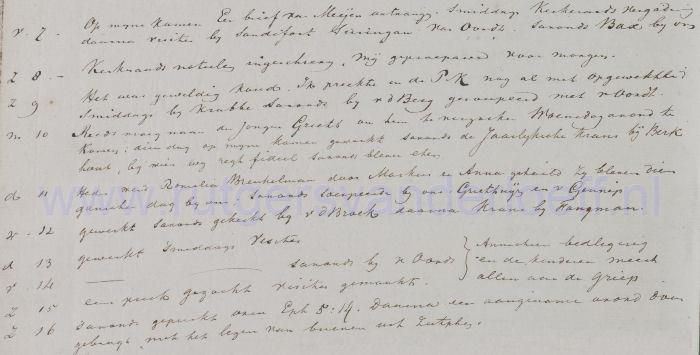 v. 7. Op myne kamen Een brief van Meijer ontvangen. Smiddags Kerkeraads vergadering
daarna visites by Sandifort van Oordt. Savonds Bax by ons
Z 8. - Kerkeraads notulen ingeschreven, Mij geprepareerd voor morgen.
Z 9 Het was geweldig koud. Ik preekte in de P.K nog al met opgewektheid
Smiddags by Krabbe Savonds by v d Berg gesoupeerd met v Oordt.
m. 10 Reeds vroeg naar de jonge om hem te Woensdag avond te
komen; dien dag op myne kamer gewerkt savonds de Jaarlyksche krans bij Berk
hout, by wien wy regt fideel savonds bleven eten.
d 11 Heden werd Broukelman door Markus en Anna gehaald Zy bleven dien
dag by ons. Savonds soupeerde by ons en v Gennep
w. 12 gewerkt Savonds gekeekt by v d Broek daarna Krans by Hangman.
d 13 gewerkt Smiddags Visites
v. 14 savonds by v Oordt
Annetjen bedlegerig
en de kinderen meest
allen aan de Griep
Z 15 een preek gezocht visites gemaakt.
Z 16 Savonds gepreekt over Eph 5:14. Daarna den aangename avond door
gebragt met het lezen van brieven uit Zutphen.
www.rutgersvandenloeff.nl